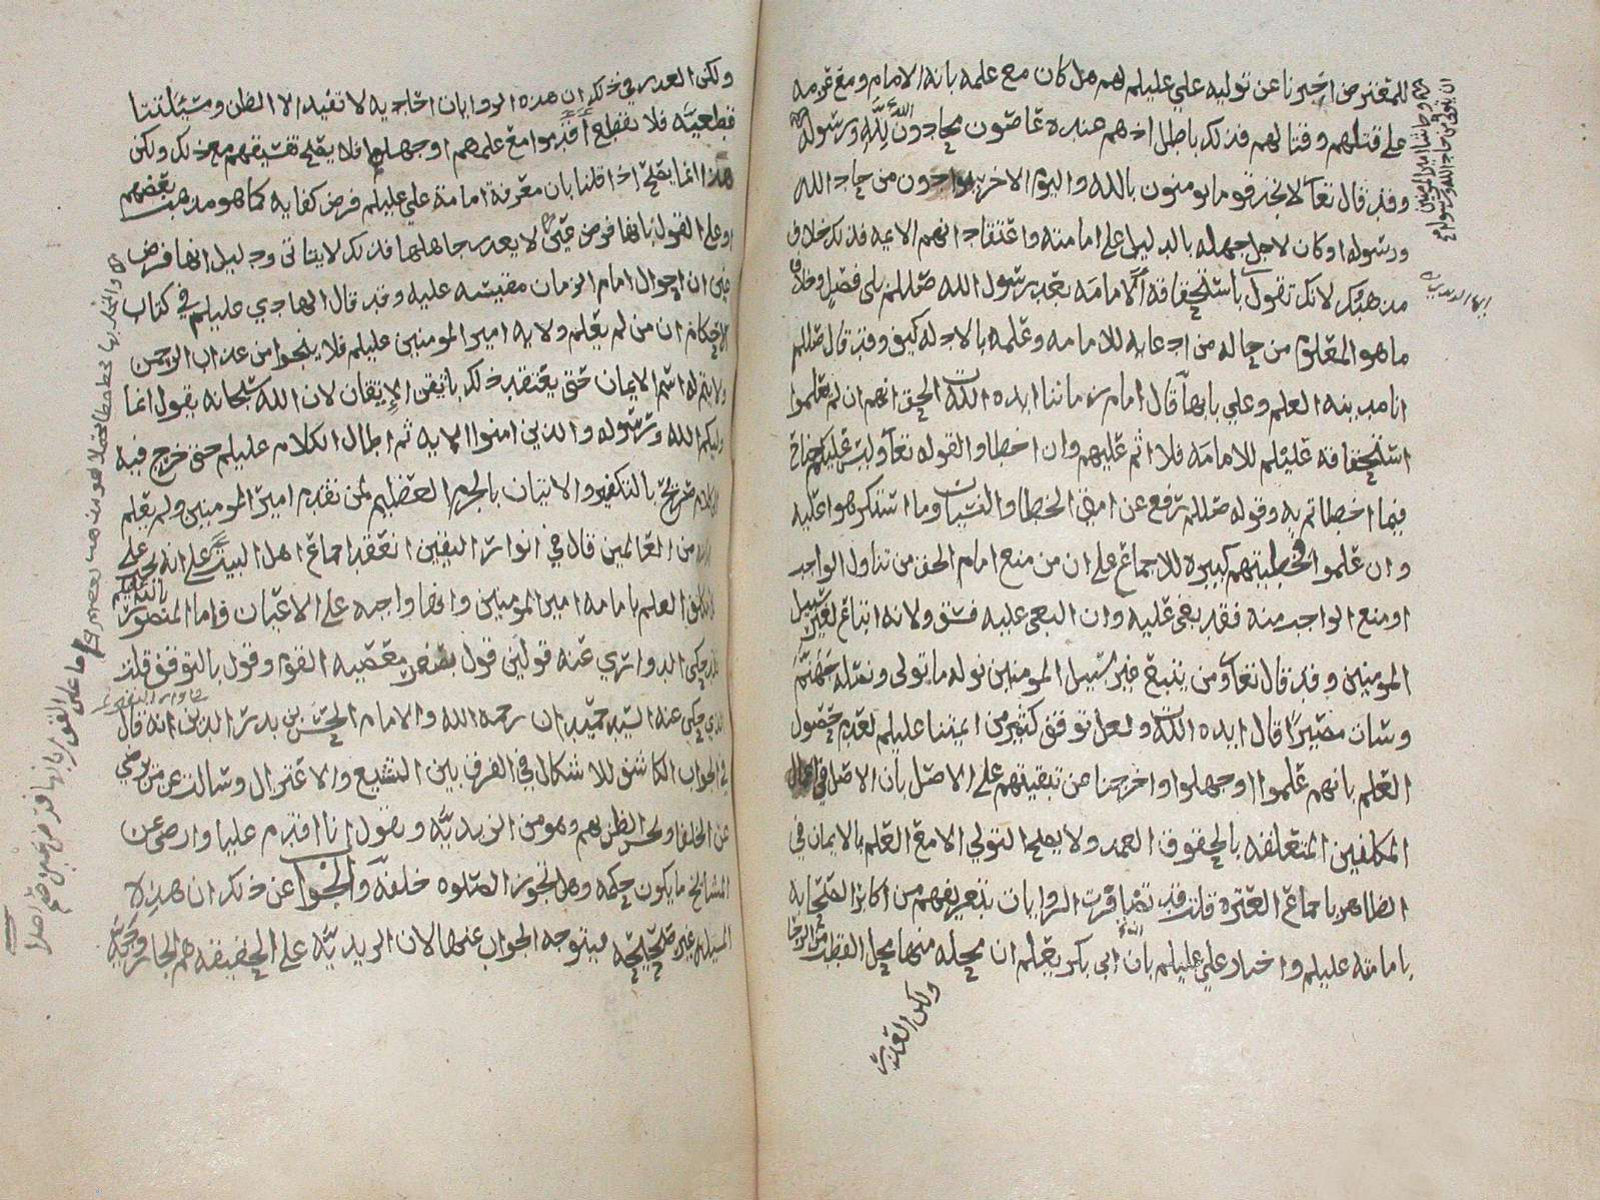 للمعترض اخبرنا عن توليه علي عليلم لهم هل كان مع علمه بانه الامام ومع عزمه
على قتلهم وقتالهم فذلك باطل اذ هم عنده عاصون محادون لله ورسوله
وقد قال تعا لا تجد قوما يومنون بالله واليوم الاخر يوادون من حاد الله
ورسوله او كان لاجل جهله بالدليل على امامته واعتقاد انهم الايمه فذلك خلاف
مذهبك لانك تقول باستحقاقه الامامه بعد رسول الله صللم بلى فصل وخلاف
ما هو المعلوم من حاله من ادعايه للامامه وعلمه بالادله كيف وقد قال صللم
انا مدينه العلم وعلي بابها قال امام زماننا ايده الله الحق انهم ان لم يعلموا
استحقاقه عليلم للامامه فلا اثم عليهم وان اخطاوا لقوله تعا وليس عليكم جناح
فيما اخطاتم به وقوله صللم رفع عن امتي الخطا والنسيان وما استكرهوا عليه
وان علموا فخطيتهم كبيره للاجماع على ان من منع امام الحق من تناول الواجب
او منع الواجب منه فقد بغى عليه وان البغي عليه فسق ولانه اتباع لغير سبيل
المومنين وقد قال تعا ومن يتبع غير سبيل المومنين نوله ما تولى ونصله جهنم
وسات مصيرا قال ايده الله ولعل توقف كثير من ايمتنا عليلم لعدم حصول
العلم بانهم علموا او جهلوا واخرجنا عن تبقيتهم على الاصل بان الاصل في افعال
المكلفين المتعلقه بالحقوق العمد ولا يصلح التولي الا مع العلم بالايمان في
الظاهر باجماع العتره قلت قد تضافرت الروايات بتعريفهم من اكابر الصحابه
بامامته عليلم واخبار علي عليلم بان ابي بكر يعلم ان محله منها محل القطب من الرحا
ولكن العدر
ولكن العدر في ذلك ان هذه الروايات احاديه لا تفيد الا الظن ومسئلتنا
قطعيه فلا نقطع اقدموا مع علمهم او جهلهم فلا يصلح تفسيقهم مع ذلك ولكن
هذا انما يصلح اذا قلنا بان معرفة امامة علي عليلم فرض كفايه كما هو مذهب بعضهم
او على القول بانها فرض عين لا يعدر جاهلها فذلك لا يتاتى ودليل انها فرض
عين ان احوال امام الزمان مقيسه عليه وقد قال الهادي عليلم في كتاب
الاحكام ان من لم يعلم ولايه امير المومنين عليلم فلا ينجوا من عذاب الرحمن
ولا يتم له اسم الايمان حتى يعتقد ذلك باتقن الايقان لان الله سبحانه يقول انما
وليكم الله ورسوله والذين امنوا الايه ثم اطال الكلام عليلم حتى خرج فيه
صرح بالتكفير والاتيان بالجرم العظيم لمن تقدم امير المومنين ولم يعلم
من العالمين قال في انوار اليقين انعقد اجماع اهل البيت على انه يجب على
العلم بامامه امير المومنين وانها واجبه على الاعيان فاما المنصور بالله عليلم
حكى الدواري عنه قولين قول بمعصيه القوم وقول بالتوقف قلت
الذي حكى عنه السيد حميدان رحمه الله والامام الحسن بن بدر الدين انه قال
في الجواب الكاشف للاشكال في الفرق بين التشيع والاعتزال وسالت عن من يرضي
عن الخلفا ويحسن الظن بهم وهو من الزيديه ويقول انا اقدم عليا وارضى عن
المشائخ ما يكون حكمه وهل تجوز الصلوه خلفه والجواب عن ذلك ان هذه
المسئله غير صحيحه فيتوجه الجواب عنها لان الزيديه على الحقيقه هم الجاروديه